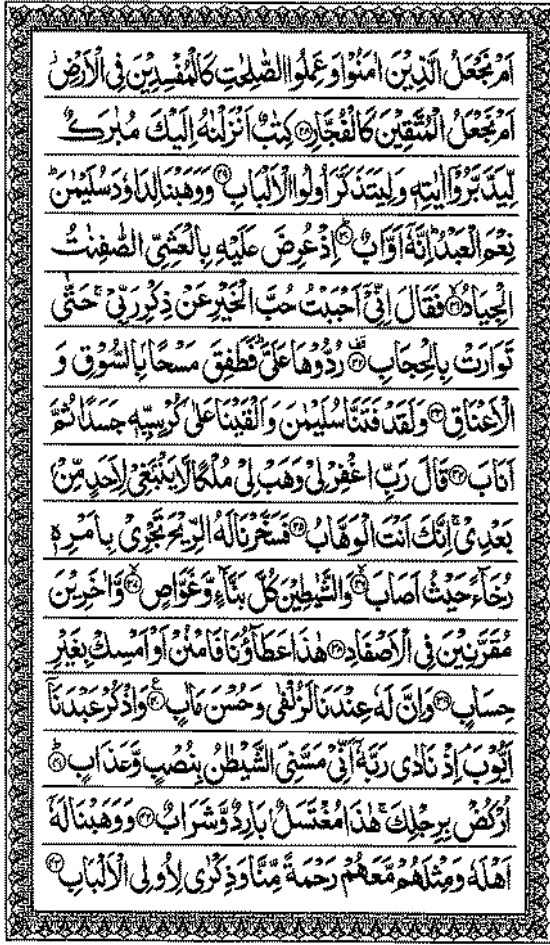 اَمْ نَجْعَلُ الَّذِيْنَ اٰمَنُوْا وَعَمِلُوا الصّٰلِحٰتِ كَالْمُفْسِدِيْنَ فِى الْاَرْضِ
اَمْ نَجْعَلُ الْمُتَّقِيْنَ كَالْفُجَّارِ ۝۲۸ كِتٰبٌ اَنْزَلْنٰهُ اِلَيْكَ مُبٰرَكٌ
لِّيَدَّبَّرُوْۤا اٰيٰتِهٖ وَلِيَتَذَكَّرَ اُولُوا الْاَلْبَابِ ۝۲۹ وَوَهَبْنَا لِدَاوٗدَ سُلَيْمٰنَ ؕ
نِعْمَ الْعَبْدُ ؕ اِنَّهٗۤ اَوَّابٌ ۝۳۰ اِذْ عُرِضَ عَلَيْهِ بِالْعَشِىِّ الصّٰفِنٰتُ
الْجِيَادُ ۝۳۱ فَقَالَ اِنِّىْۤ اَحْبَبْتُ حُبَّ الْخَيْرِ عَنْ ذِكْرِ رَبِّىْ ۚ حَتّٰى
تَوَارَتْ بِالْحِجَابِ ۝۳۲ رُدُّوْهَا عَلَىَّ ؕ فَطَفِقَ مَسْحًۢا بِالسُّوْقِ وَ
الْاَعْنَاقِ ۝۳۳ وَلَقَدْ فَتَنَّا سُلَيْمٰنَ وَاَلْقَيْنَا عَلٰى كُرْسِيِّهٖ جَسَدًا ثُمَّ
اَنَابَ ۝۳۴ قَالَ رَبِّ اغْفِرْ لِىْ وَهَبْ لِىْ مُلْكًا لَّا يَنْۢبَغِىْ لِاَحَدٍ مِّنْۢ
بَعْدِىْ ۚ اِنَّكَ اَنْتَ الْوَهَّابُ ۝۳۵ فَسَخَّرْنَا لَهُ الرِّيْحَ تَجْرِىْ بِاَمْرِهٖ
رُخَآءً حَيْثُ اَصَابَ ۝۳۶ وَالشَّيٰطِيْنَ كُلَّ بَنَّآءٍ وَّغَوَّاصٍ ۝۳۷ وَّاٰخَرِيْنَ
مُقَرَّنِيْنَ فِى الْاَصْفَادِ ۝۳۸ هٰذَا عَطَآؤُنَا فَامْنُنْ اَوْ اَمْسِكْ بِغَيْرِ
حِسَابٍ ۝۳۹ وَاِنَّ لَهٗ عِنْدَنَا لَزُلْفٰى وَحُسْنَ مَاٰبٍ ۝۴۰ وَاذْكُرْ عَبْدَنَاۤ
اَيُّوْبَ ۘ اِذْ نَادٰى رَبَّهٗۤ اَنِّىْ مَسَّنِىَ الشَّيْطٰنُ بِنُصْبٍ وَّعَذَابٍ ۝۴۱
اُرْكُضْ بِرِجْلِكَ ۚ هٰذَا مُغْتَسَلٌۢ بَارِدٌ وَّشَرَابٌ ۝۴۲ وَوَهَبْنَا لَهٗۤ
اَهْلَهٗ وَمِثْلَهُمْ مَّعَهُمْ رَحْمَةً مِّنَّا وَذِكْرٰى لِاُولِى الْاَلْبَابِ ۝۴۳